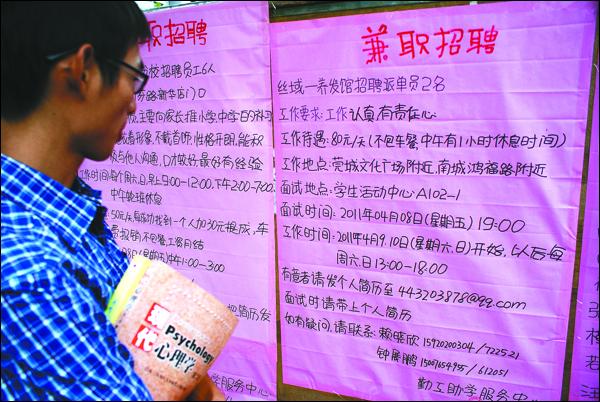 职招聘
学校招聘员工6人
务路新华店门口
主要向家长推小学,中学日的补习
或看形象,不戴首饰,性格开朗,能积
极与他人沟通,口才好最好有经验
工作时间:每个周六日,早上9:00-12:00,下午2:00-7:00,
中午轮班休息
50元/天,每成功找到一个人加30元提成,车
费报销,不包餐,工资月结
8日(星期五)中午1:00-3:00
把简历发
学服务中心
兼职招聘
丝域—养发馆招聘派单员2名
工作要求:工作认真有责任心
工作待遇:80元/天(不包车餐,中午有1小时休息时间)
工作地点:莞城文化广场附近,南城鸿福路附近
面试地点:学生活动中心A102-1
面试时间:2011年04月08日(星期五)19:00
工作时间:2011年4月9,10日(星期六,日)开始,以后每
周六日13:00-18:00
有意者请发个人简历至443203878@qq.com
面试时请带上个人简历
如有疑问,请联系:赖晓欣 15920200304/722521
钟展鹏 15007654795/612051
勤工助学服务中心
现代
Psychology
心理学